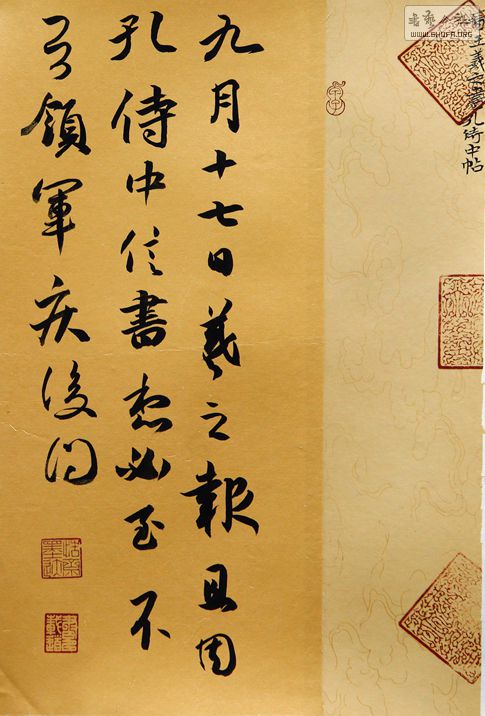 WWW.SHUFA.ORG
王羲之書孔侍中帖
九月十七日羲之報且因
孔侍中信書想必至不
知領軍疾後問